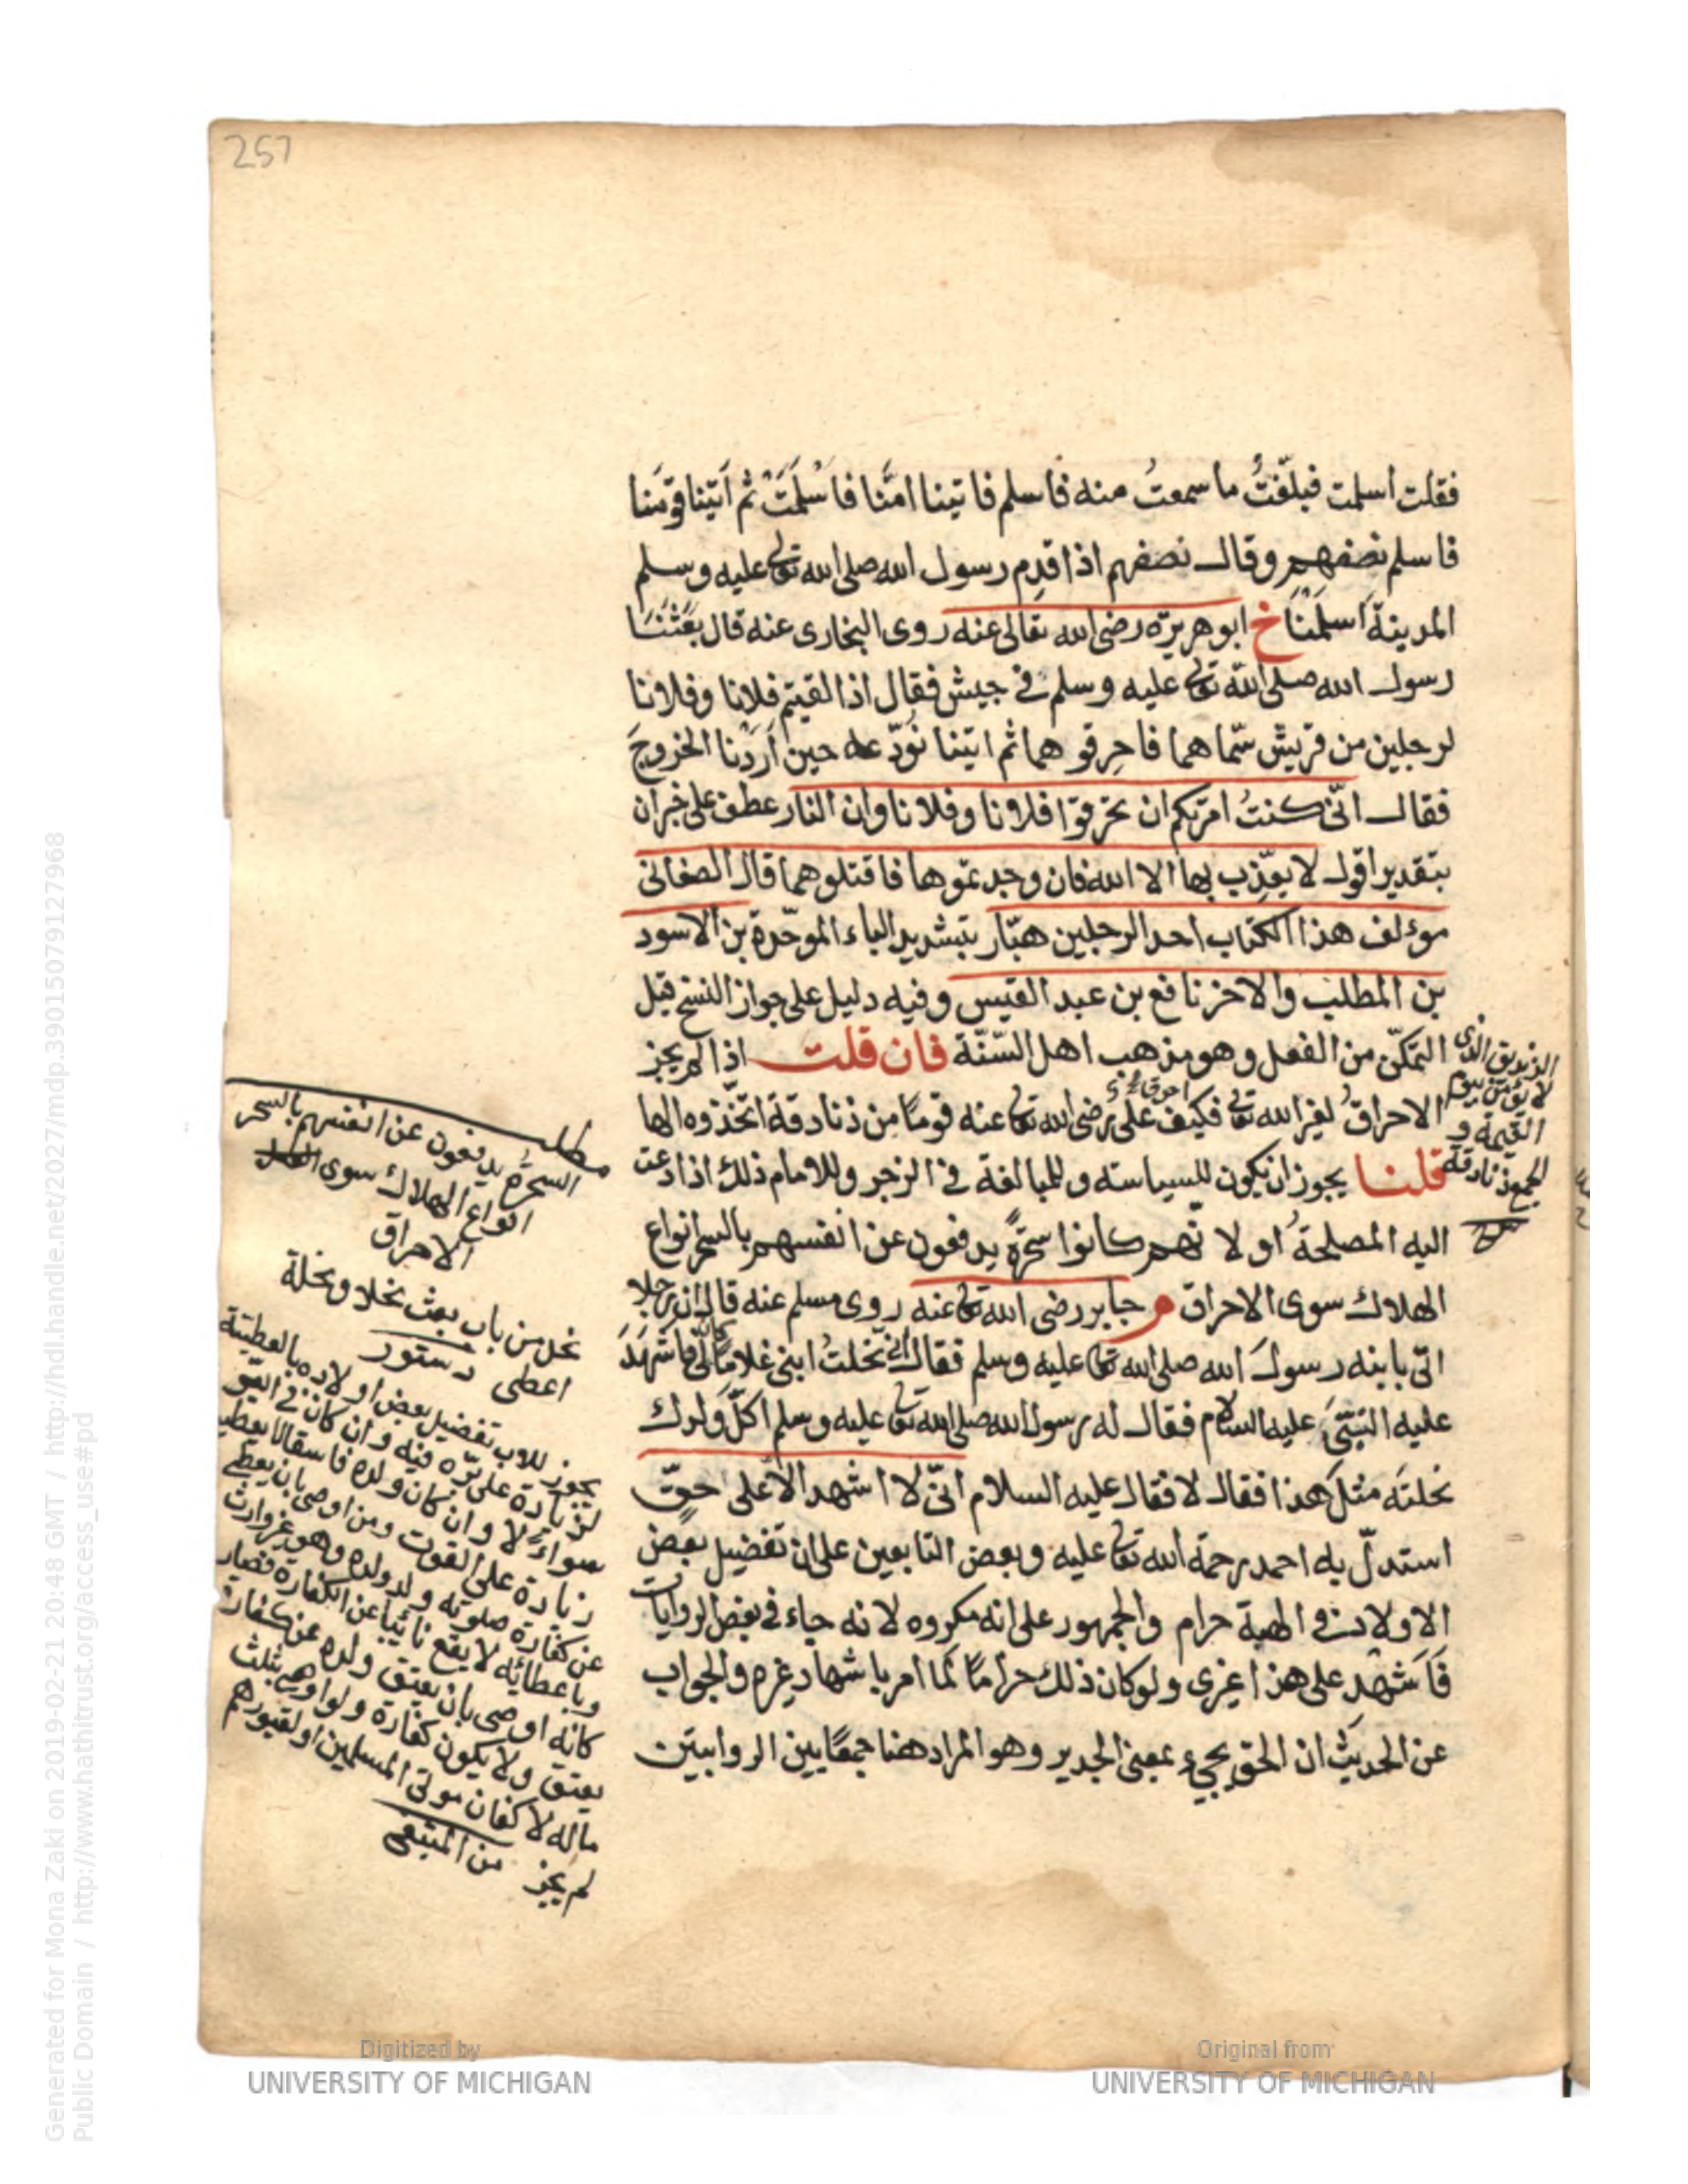 257
فقلت اسلمت فبلّغتُ ما سمعتُ منه فاسلم فاتينا امّنا فاسْلَمَتْ ثم اَتينا قومَنا
فاسلم نصفهم وقال نصفهم اذا قدِم رسول الله صلى الله تعالى عليه وسلم
المدينةَ اَسلَمْنَا خ ابوهريرة رضى الله تعالى عنه روى البخارى عنه قال بَعَثَنَا
رسول الله صلى الله تعالى عليه وسلم فى جيش فقال اذا لقيتم فلانا وفلانا
لرجلين من قريش سمّاهما فاحرِقوهما ثم اتينا نُودّعه حين اَرَدْنا الخروجَ
فقال انّى كنتُ امرتكم ان تحرقوا فلانا وفلانا وان النار عطف على خبر ان
بتقدير اقول لا يعذّب بها الا الله فان وجدتموها فاقتلوهما قال الصغانى
مؤلف هذا الكتاب احد الرجلين هبّار بتشديد الباء الموحّدة بن الاسود
بن المطلب والاخر نافع بن عبد القيس وفيه دليل على جواز النسخ قبل
التمكّن من الفعل وهو مذهب اهل السّنّة فان قلت اذا لم يجز
الاحراقُ لغير الله تعالى فكيف احرق على رضى الله تعالى عنه قومًا من زنادقة اتخذوه الها
قلنا يجوز ان يكون للسياسته وللمبالغة فى الزجر وللامام ذلك اذا دعت
اليه المصلحةُ او لانّهم كانوا سحرةً يدفعون عن انفسهم بالسحر انواع
الهلاك سوى الاحراق م جابر رضى الله تعالى عنه روى مسلم عنه قال ان رجلا
اتى بابنه رسولَ الله صلى الله تعالى عليه وسلم فقال انى نحلتُ ابنى غلامًا كان لى فاَشهَدَ
عليه النبىَّ عليه السلام فقال له رسول الله صلى الله تعالى عليه وسلم اكلّ ولدك
نحلتَه مثلَ هذا فقال لا فقال عليه السلام انّى لا اشهد الا على حقّ
استدلّ به احمد رحمة الله تعالى عليه وبعض التابعين على ان تفضيل بعض
الاولاد فى الهبة حرام والجمهور على انه مكروه لانه جاء فى بعض الروايات
فَاَشهْد على هذا غيرى ولو كان ذلك حرامًا لَما امر باشهاد غيره والجواب
عن الحديث ان الحق يجىء بمعنى الجدير وهو المراد ههنا جمعًا بين الروايتين
الزنديق الذى
لا يؤمن بيوم
القيمة و
الجمع زنادقة
مطلب
السحرة يدفعون عن انفسهم بالسحر
انواع الهلاك سوى
الاحراق
نحل من باب بعث نحلا ونحلة
اعطى دستور
يجوز للاب تفضيل بعض اولاده بالعطيّة
لزيادة على برّه فيه وان كان فى البر
سواءً لا وان كان ولده فاسقا لا يعطيه
زيادة على القوت ومن اوصى بان يعطى
عن كفارة صلوته ولد ولده وهو غير وارث
وباعطائه لا يقع نائبا عن الكفارة فصار
كانه اوصى بان يعتق ولده عن كفارة
يعتق ولا يكون كفارة ولو اوصى بثلث
ماله لاكفان موتى المسلمين او لقبورهم
لم يجز من المبتغى
Digitized by
UNIVERSITY OF MICHIGAN
Original from
UNIVERSITY OF MICHIGAN
Generated for Mona Zaki on 2019-02-21 20:48 GMT / http://hdl.handle.net/2027/mdp.39015079127968
Public Domain / http://www.hathitrust.org/access_use#pd